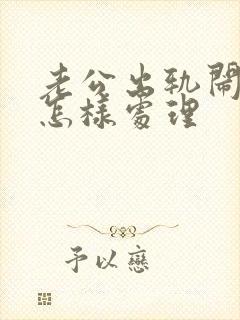 老公出轨闹
怎样处理
予以恋